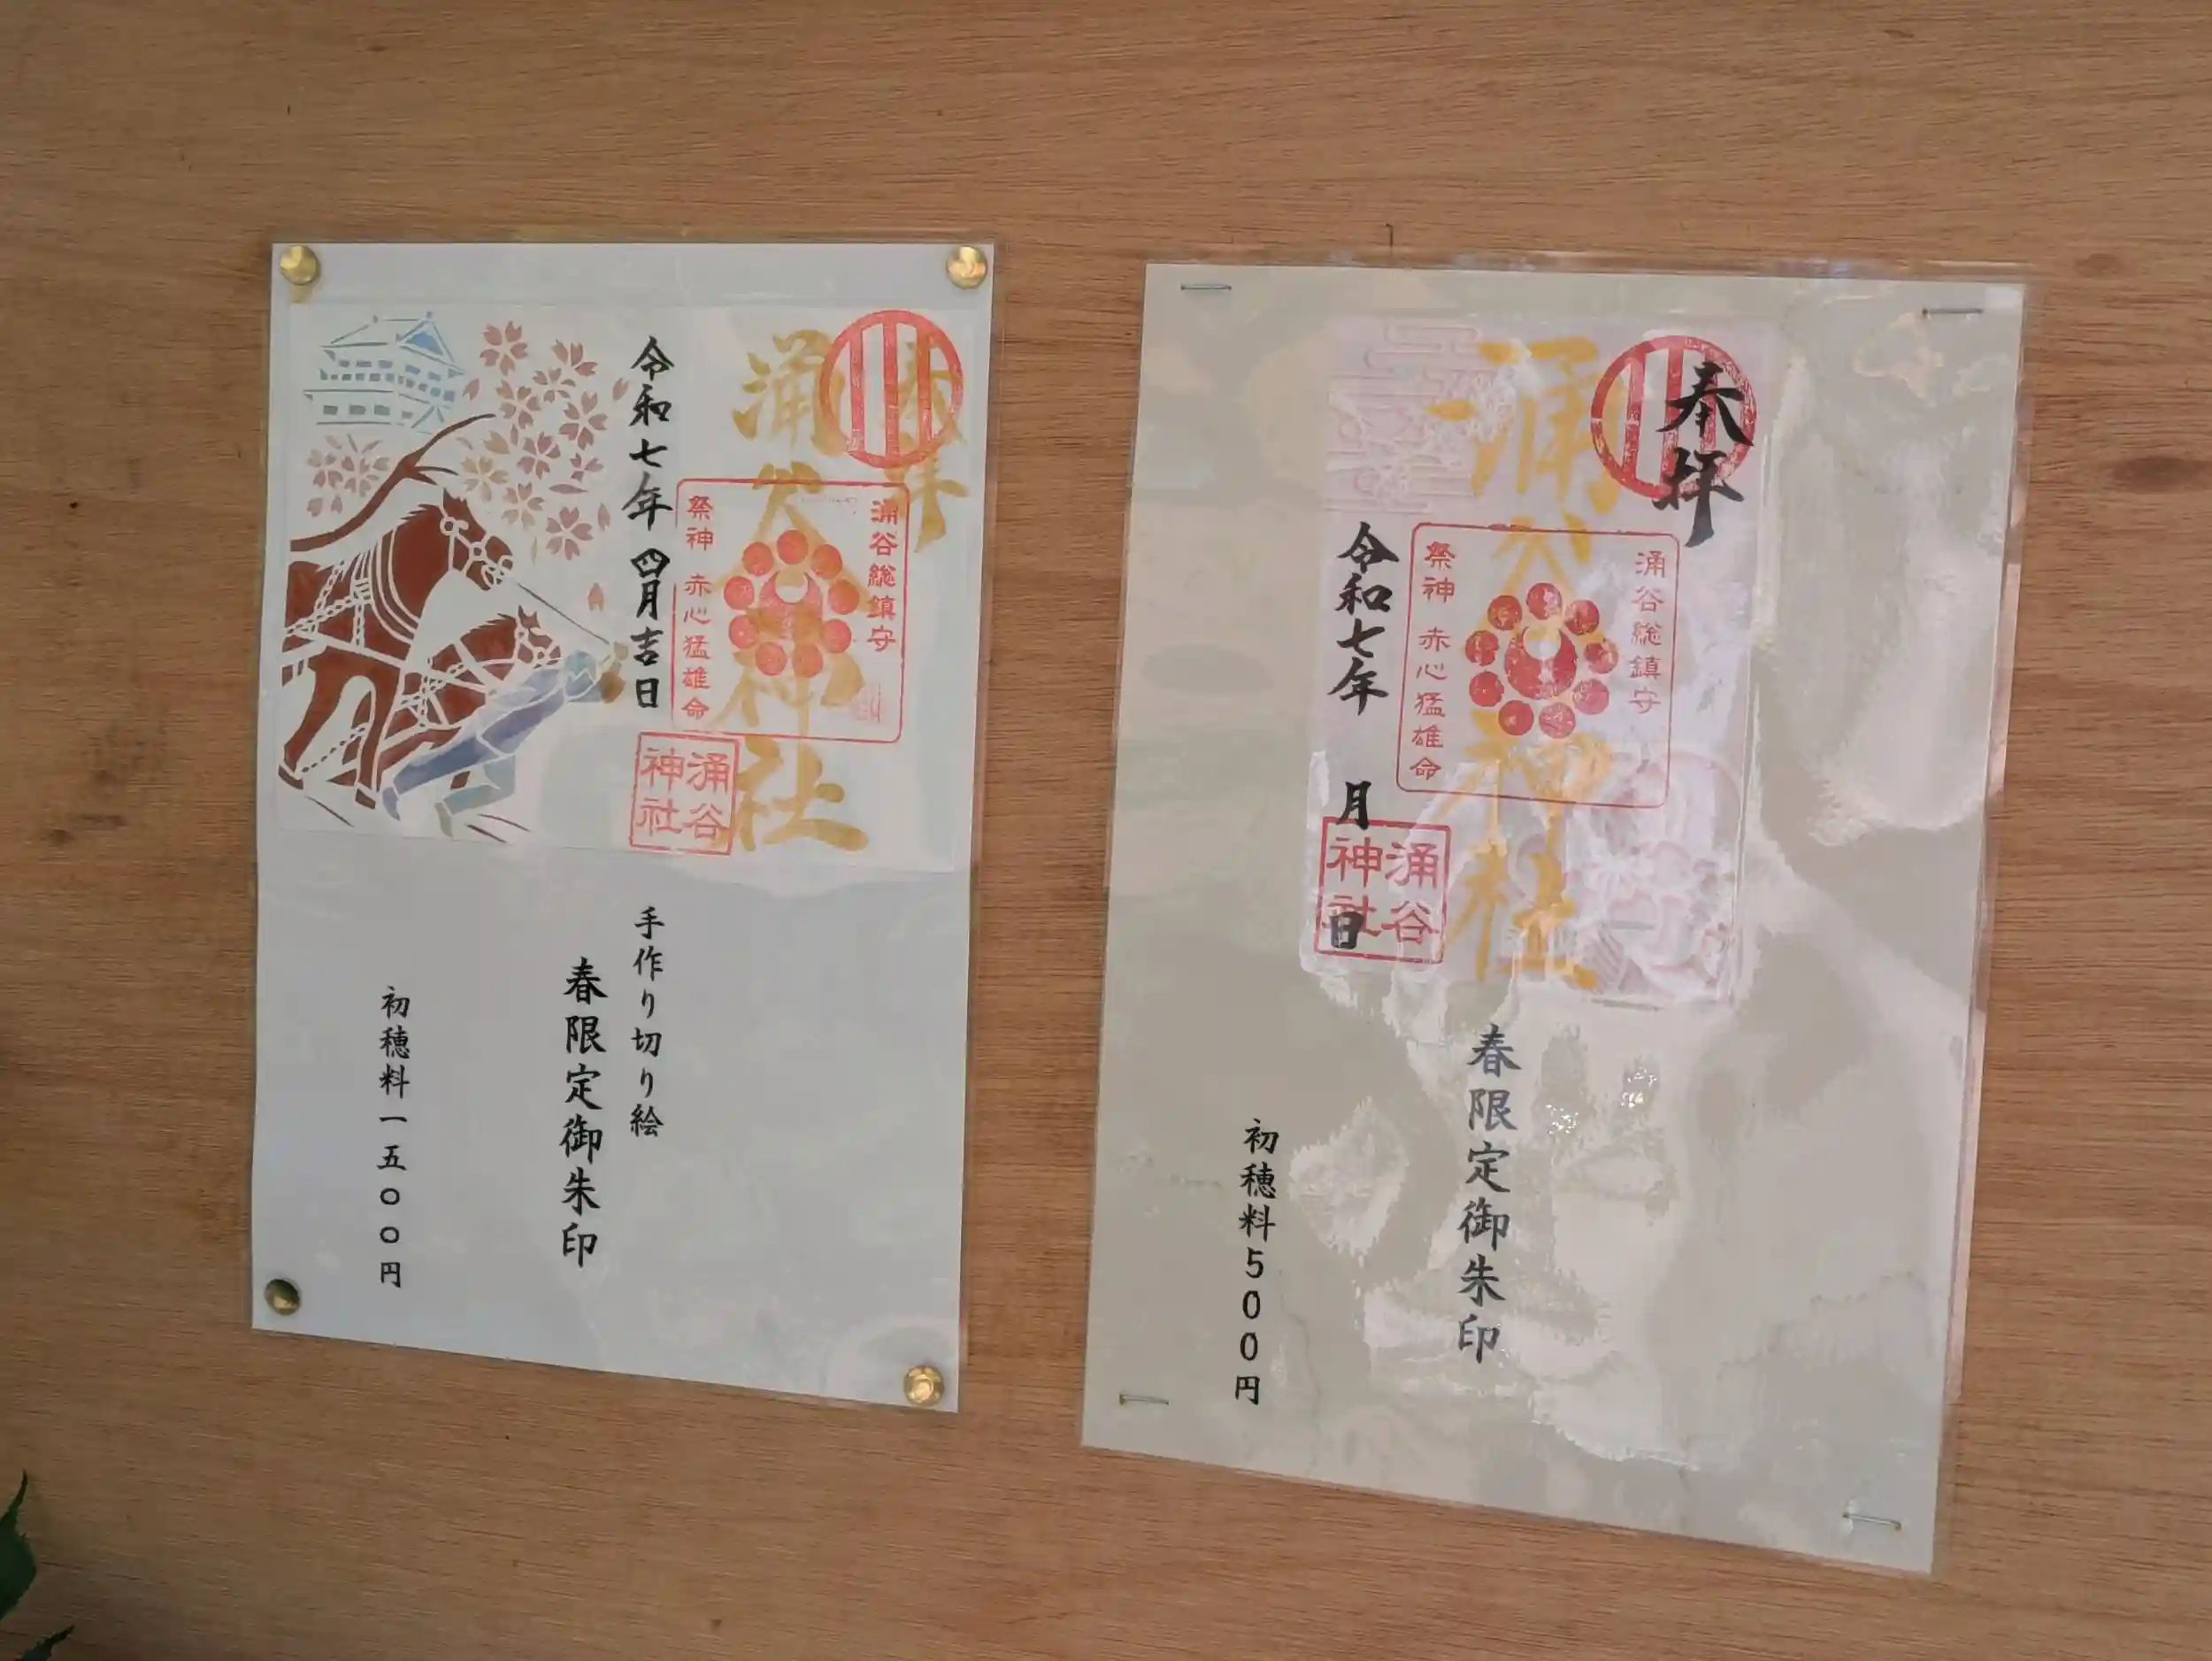 奉拝
涌谷神社
涌谷総鎮守
祭神 赤心猛雄命
令和七年 四月吉日
涌谷
神社
手作り切り絵
春限定御朱印
初穂料一五〇〇円
奉拝
涌谷神社
涌谷総鎮守
祭神 赤心猛雄命
令和七年 月 日
涌谷
神社
春限定御朱印
初穂料500円